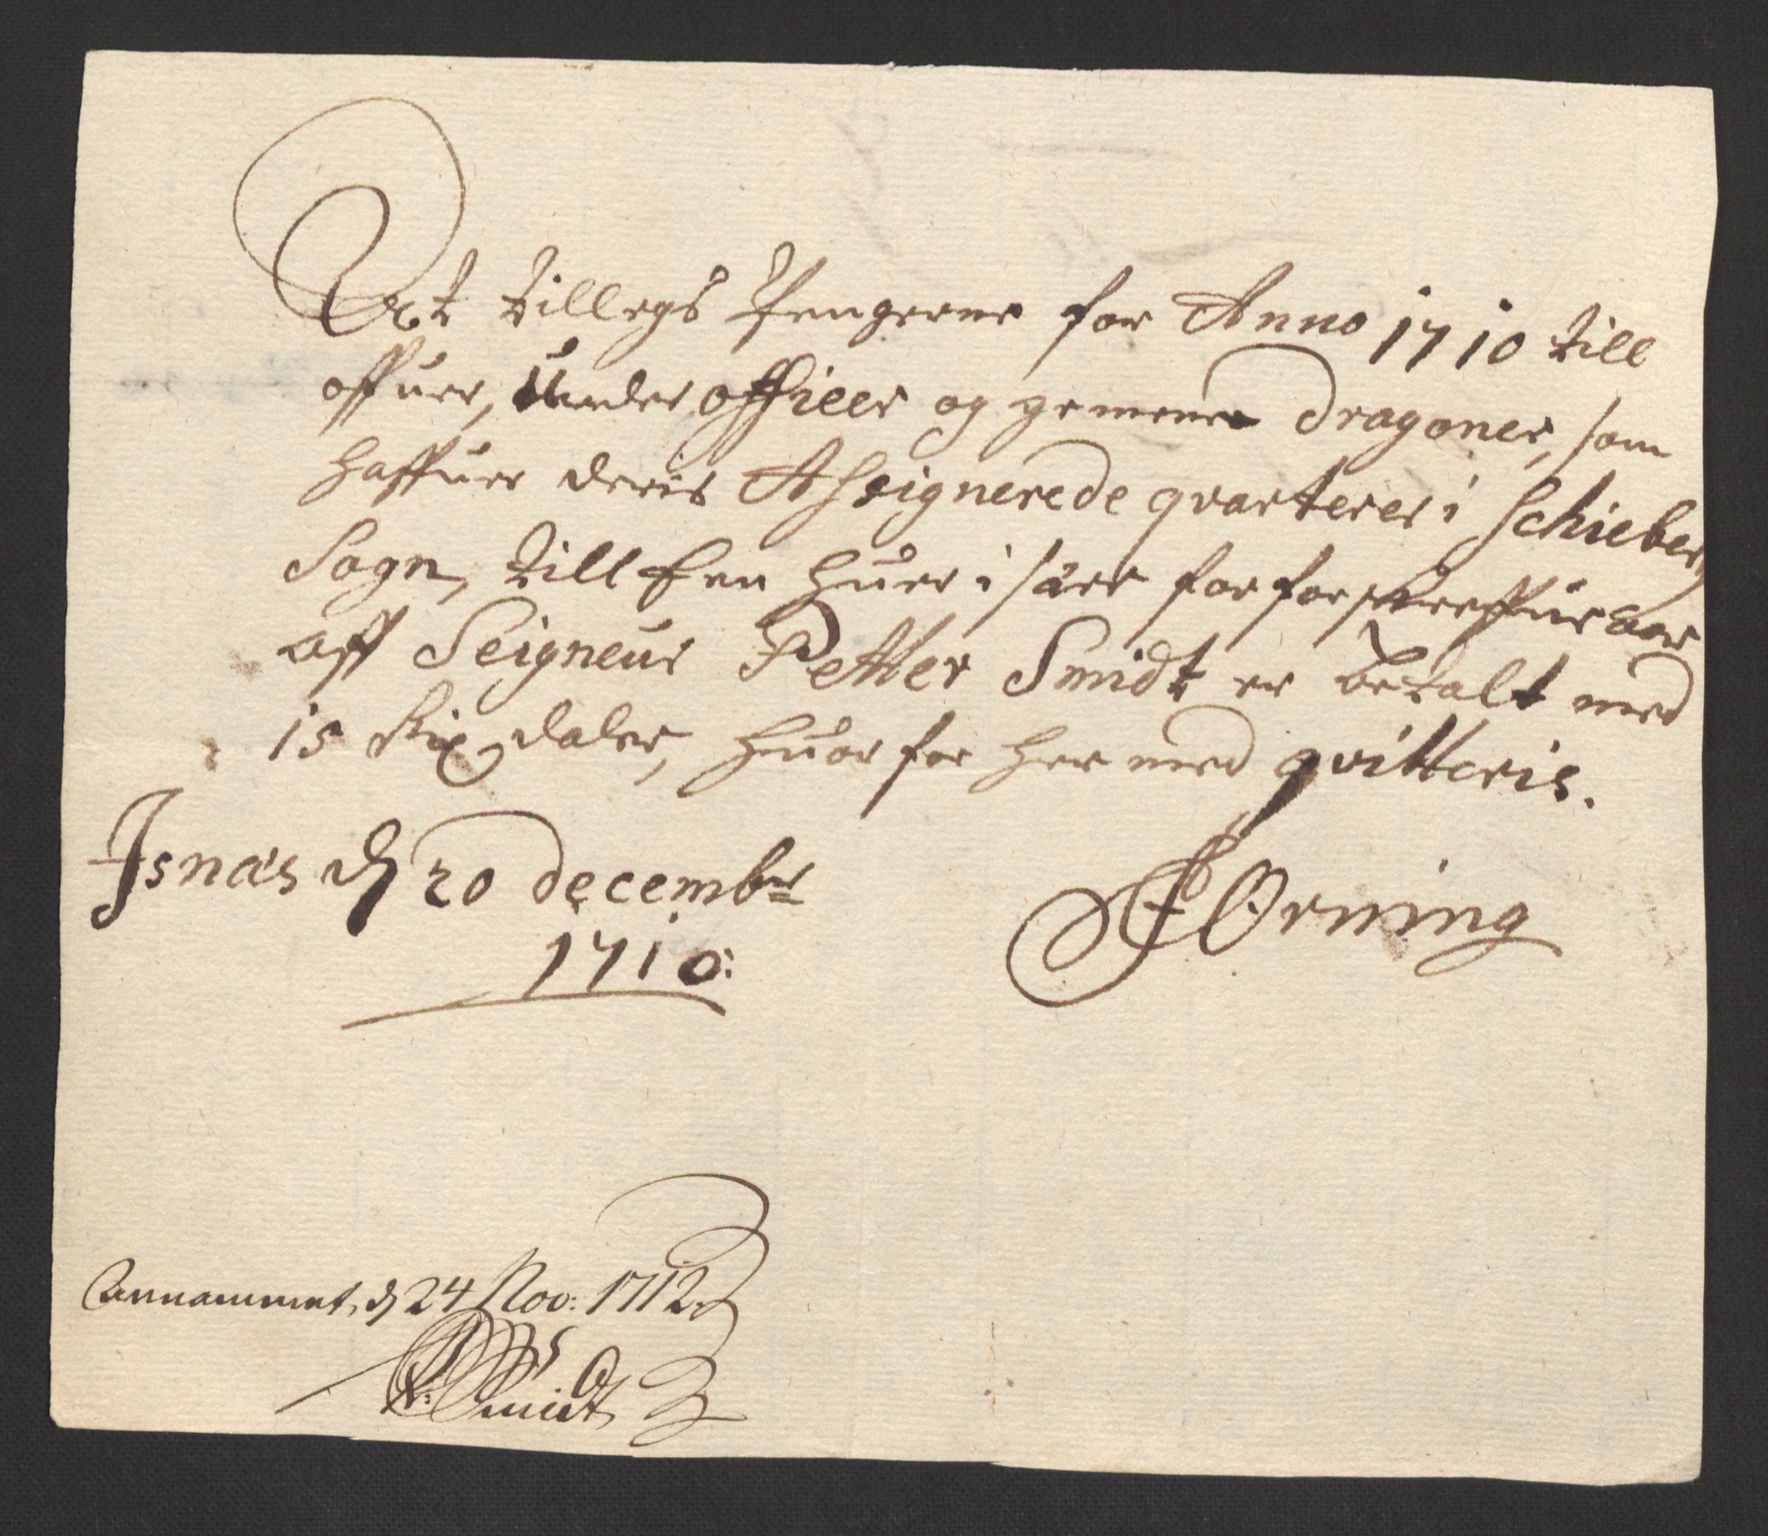 At tillegs Pengerne for Anno 1710 till
offuer, Under officer og gemene Dragoner, som
haffuer deris Assignerede qvarterer i Schieberg
Sogn, till Een huer i sær for forschreffne aar
aff Seigneur Petter Smidt er betalt med
15 Rix daler, huor for her med qvitteris.
Isnæs d 20 decembr
1710:
Ørning
Annammet, d 24 Nov: 1712
Smidt